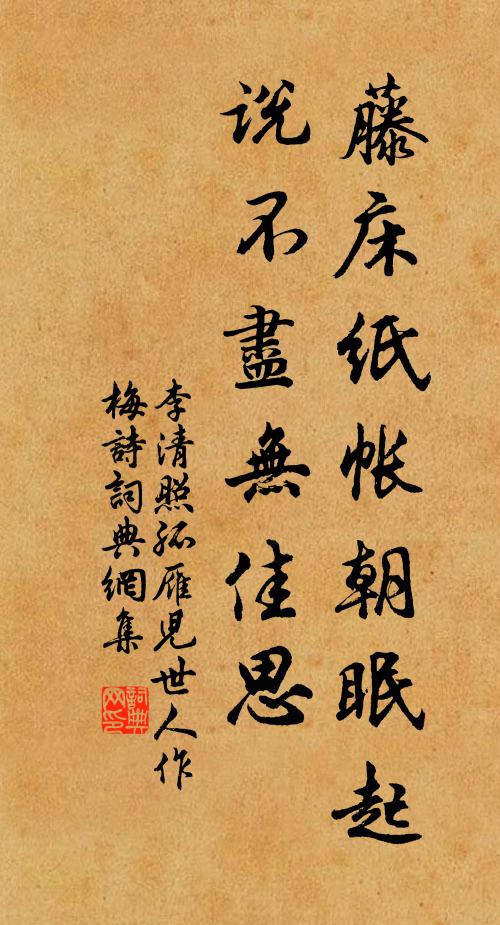 藤床紙帐朝眠起
説不盡無佳思
李清照孤雁児世人作
梅詩詞典網集
詞典
网印